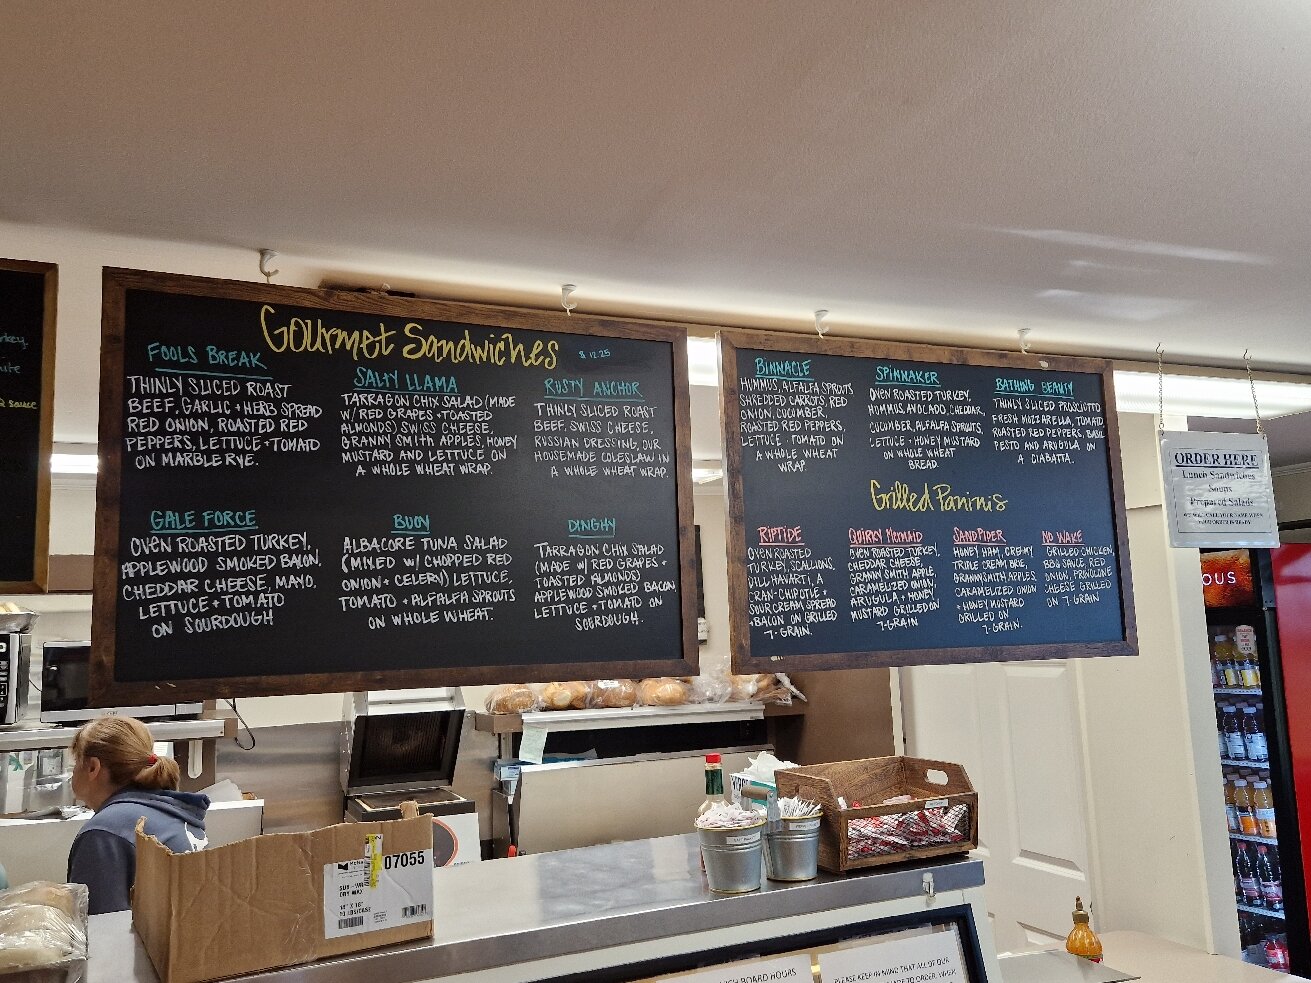 Gourmet Sandwiches
$ 12.25
FOOLS BREAK
THINLY SLICED ROAST
BEEF, GARLIC + HERB SPREAD
RED ONION, ROASTED RED
PEPPERS, LETTUCE + TOMATO
ON MARBLE RYE.
SALTY LLAMA
TARRAGON CHIX SALAD (MADE
W/ RED GRAPES + TOASTED
ALMONDS) SWISS CHEESE,
GRANNY SMITH APPLES, HONEY
MUSTARD AND LETTUCE ON
A WHOLE WHEAT WRAP.
RUSTY ANCHOR
THINLY SLICED ROAST
BEEF, SWISS CHEESE,
RUSSIAN DRESSING, OUR
HOUSEMADE COLESLAW IN
A WHOLE WHEAT WRAP.
GALE FORCE
OVEN ROASTED TURKEY,
APPLEWOOD SMOKED BACON,
CHEDDAR CHEESE, MAYO,
LETTUCE + TOMATO
ON SOURDOUGH
BUOY
ALBACORE TUNA SALAD
(MIXED W/ CHOPPED RED
ONION + CELERY) LETTUCE,
TOMATO + ALFALFA SPROUTS
ON WHOLE WHEAT.
DINGHY
TARRAGON CHIX SALAD
(MADE W/ RED GRAPES +
TOASTED ALMONDS)
APPLEWOOD SMOKED BACON,
LETTUCE + TOMATO ON
SOURDOUGH.
BINNACLE
HUMMUS, ALFALFA SPROUTS
SHREDDED CARROTS, RED
ONION, CUCUMBER,
ROASTED RED PEPPERS,
LETTUCE + TOMATO ON
A WHOLE WHEAT
WRAP
SPINNAKER
OVEN ROASTED TURKEY,
HUMMUS, AVOCADO, CHEDDAR,
CUCUMBER, ALFALFA SPROUTS,
LETTUCE + HONEY MUSTARD
ON WHOLE WHEAT
BREAD.
BATHING BEAUTY
THINLY SLICED PROSCIOTTO
FRESH MOZZARELLA, TOMATO,
ROASTED RED PEPPERS, BASIL
PESTO AND ARUGULA ON
A CIABATTA.
Grilled Paninis
RIPTIDE
OVEN ROASTED
TURKEY, SCALLIONS,
DILL HAVARTI, A
CRAN-CHIPOTLE +
SOUR CREAM SPREAD
+ BACON ON GRILLED
7-GRAIN.
QUIRKY MERMAID
OVEN ROASTED TURKEY,
CHEDDAR CHEESE,
GRANNY SMITH APPLE,
CARAMELIZED ONION,
ARUGULA + HONEY
MUSTARD GRILLED ON
7-GRAIN
SANDPIPER
HONEY HAM, CREAMY
TRIPLE CREAM BRIE,
GRANNY SMITH APPLES,
CARAMELIZED ONION
+ HONEY MUSTARD
GRILLED ON
7-GRAIN.
NO WAKE
GRILLED CHICKEN,
BBQ SAUCE, RED
ONION, PROVOLONE
CHEESE GRILLED
ON 7-GRAIN
ORDER HERE
Lunch Sandwiches
Soups
Prepared Salads
WE WILL CALL YOUR NAME WHEN
YOUR ORDER IS READY
sauce
OUS
07055
DRY WAX
BOARD HOURS
PLEASE KEEP IN MIND THAT ALL OF OUR
MADE TO ORDER, WHEN